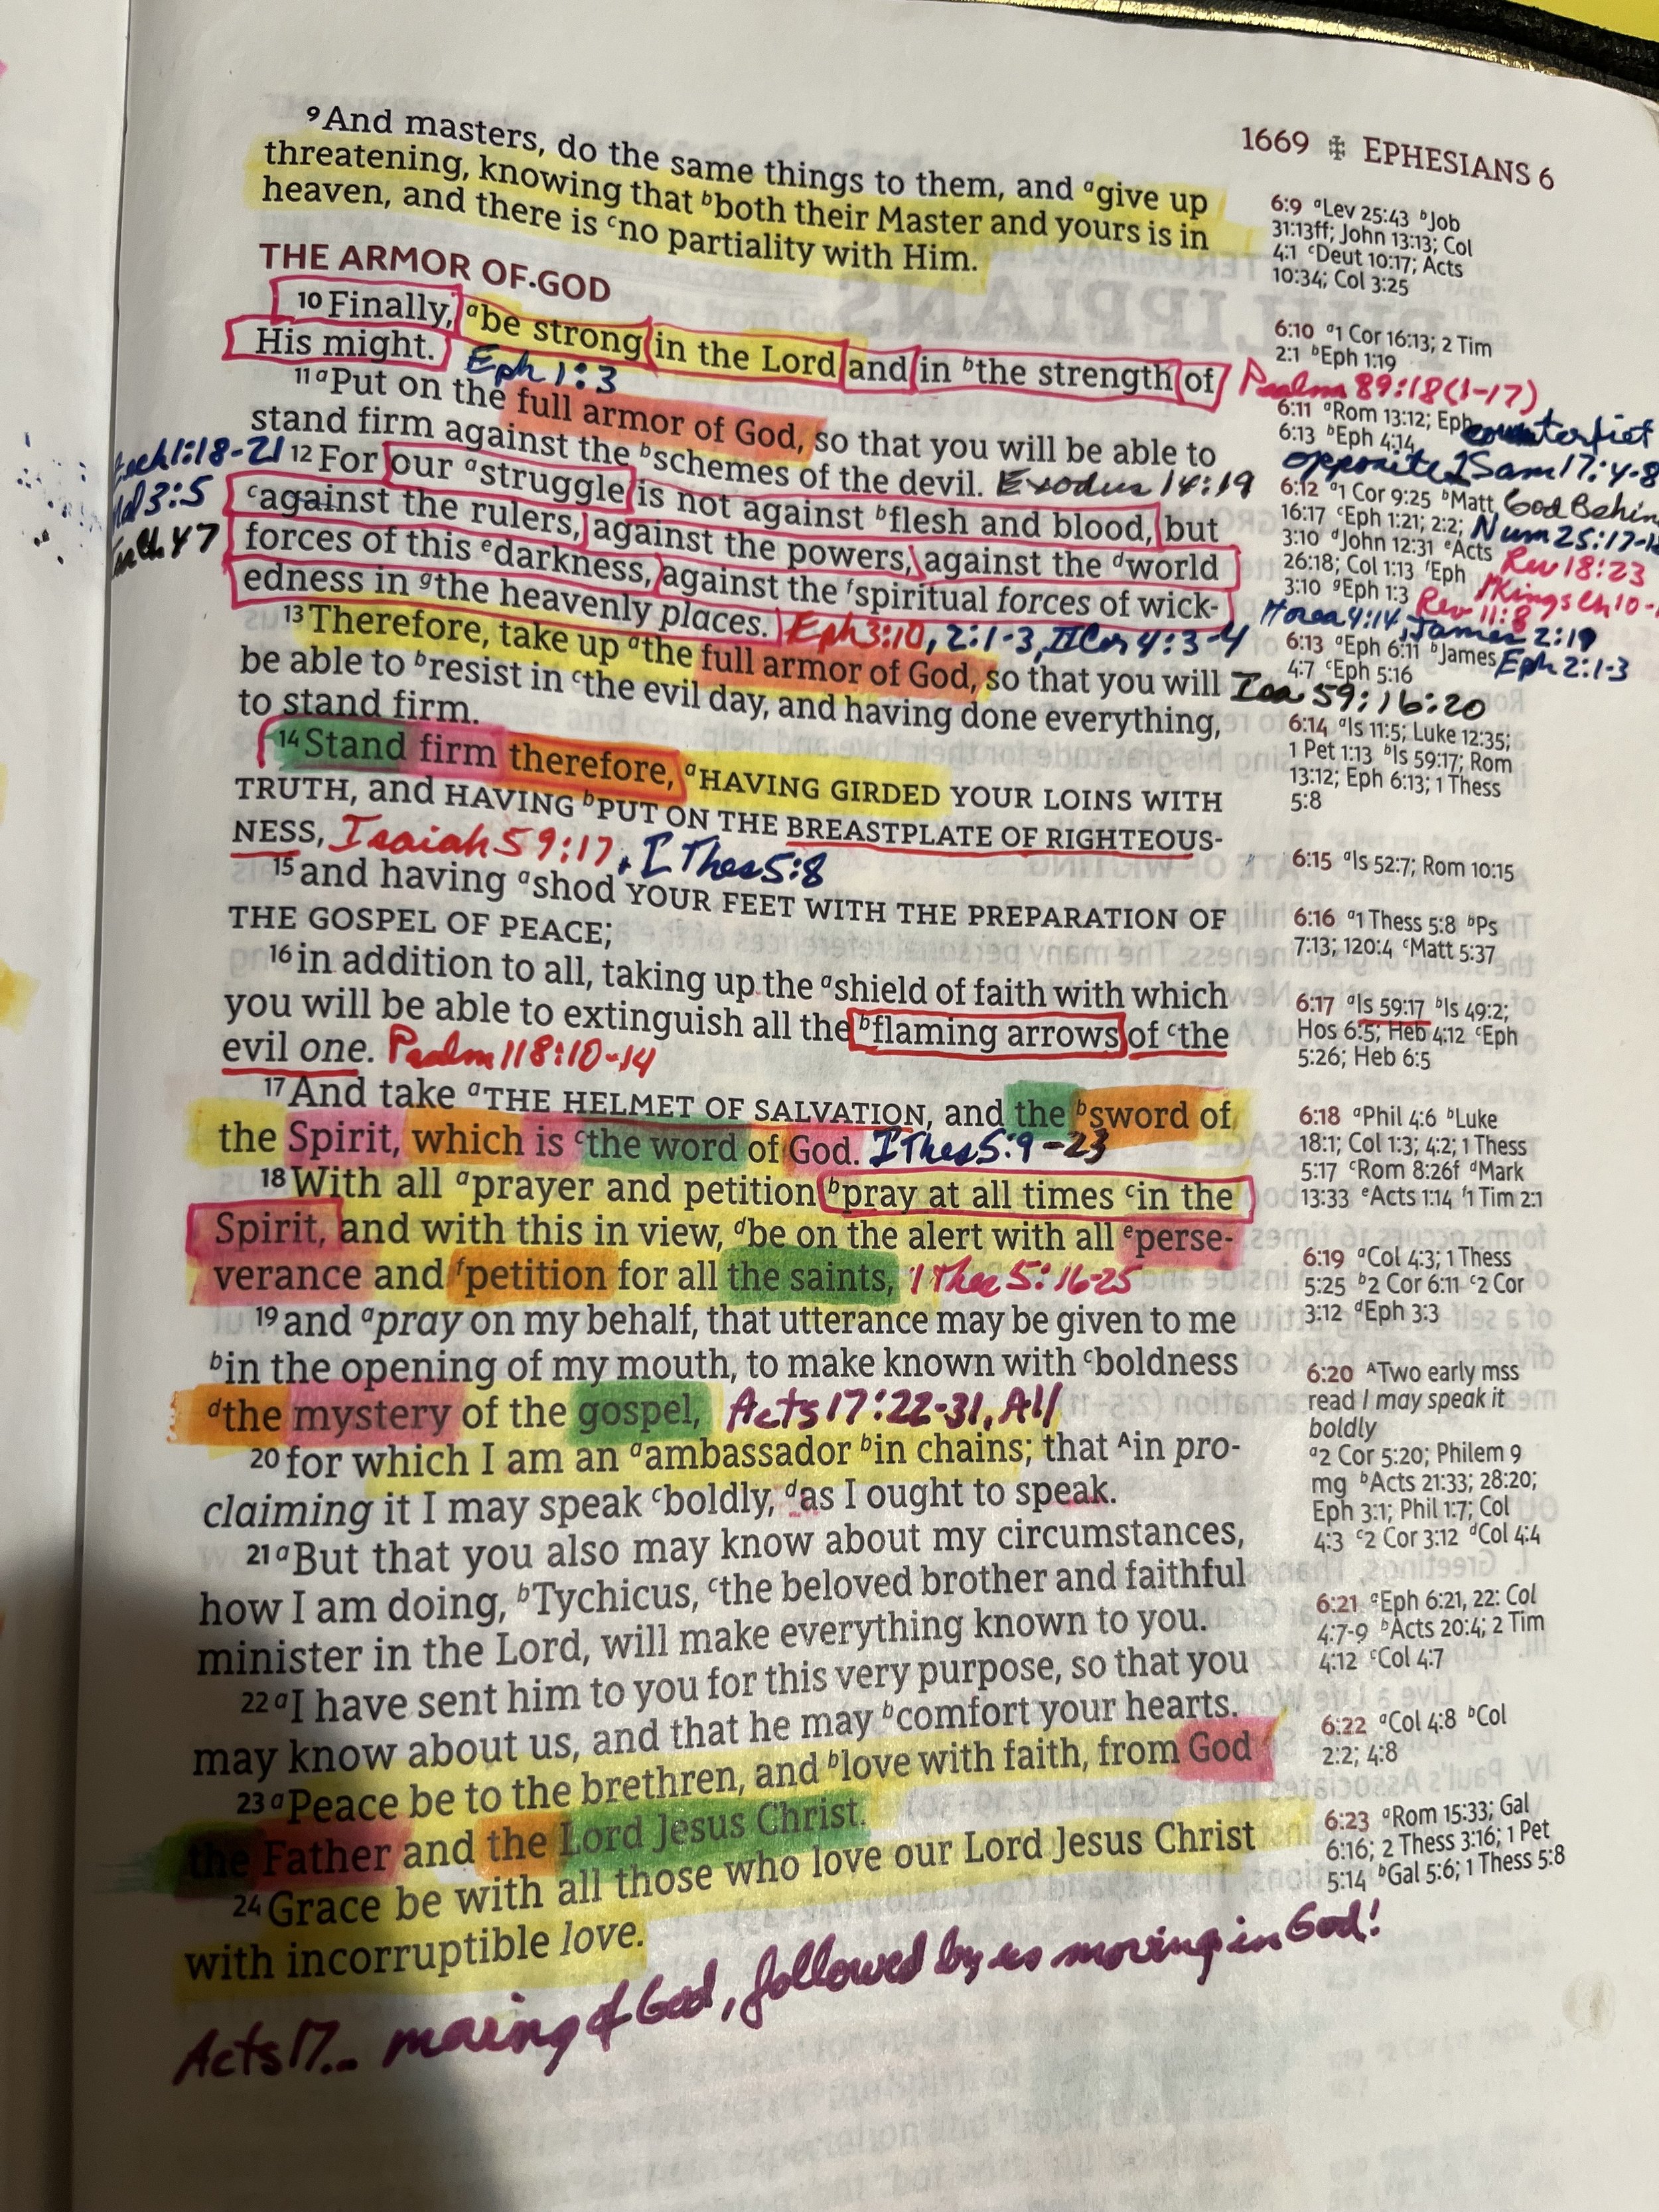 1669 ✠ EPHESIANS 6
⁹And masters, do the same things to them, and ᵃgive up
threatening, knowing that ᵇboth their Master and yours is in
heaven, and there is ᶜno partiality with Him.
THE ARMOR OF GOD
¹⁰Finally, ᵃbe strong in the Lord and in ᵇthe strength of
His might. Eph 1:3
Psalm 89:18(1-17)
¹¹ᵃPut on the full armor of God, so that you will be able to
stand firm against the ᵇschemes of the devil. Exodus 14:19
1:18-21
3:5
47
¹²For our ᵃstruggle is not against ᵇflesh and blood, but
ᶜagainst the rulers, against the powers, against the ᵈworld
forces of this ᵉdarkness, against the ᶠspiritual forces of wick-
edness in ᵍthe heavenly places. Eph 3:10, 2:1-3, II Cor 4:3-4
¹³Therefore, take up ᵃthe full armor of God, so that you will
be able to ᵇresist in ᶜthe evil day, and having done everything,
to stand firm.
Isa 59:16:20
¹⁴Stand firm therefore, ᵃHAVING GIRDED YOUR LOINS WITH
TRUTH, and HAVING ᵇPUT ON THE BREASTPLATE OF RIGHTEOUS-
NESS, Isaiah 59:17, + I Thes 5:8
¹⁵and having ᵃshod YOUR FEET WITH THE PREPARATION OF
THE GOSPEL OF PEACE;
¹⁶in addition to all, taking up the ᵃshield of faith with which
you will be able to extinguish all the ᵇflaming arrows of ᶜthe
evil one. Psalm 118:10-14
¹⁷And take ᵃTHE HELMET OF SALVATION, and the ᵇsword of
the Spirit, which is ᶜthe word of God. I Thes 5:9-23
¹⁸With all ᵃprayer and petition ᵇpray at all times ᶜin the
Spirit, and with this in view, ᵈbe on the alert with all ᵉperse-
verance and ᶠpetition for all the saints, 1 Thes 5:16-25
¹⁹and ᵃpray on my behalf, that utterance may be given to me
ᵇin the opening of my mouth, to make known with ᶜboldness
ᵈthe mystery of the gospel, Acts 17:22-31, All
²⁰for which I am an ᵃambassador ᵇin chains; that ᴬin pro-
claiming it I may speak ᶜboldly, ᵈas I ought to speak.
²¹ᵃBut that you also may know about my circumstances,
how I am doing, ᵇTychicus, ᶜthe beloved brother and faithful
minister in the Lord, will make everything known to you.
²²ᵃI have sent him to you for this very purpose, so that you
may know about us, and that he may ᵇcomfort your hearts.
²³ᵃPeace be to the brethren, and ᵇlove with faith, from God
the Father and the Lord Jesus Christ.
²⁴Grace be with all those who love our Lord Jesus Christ
with incorruptible love.
Acts 17... moving of God, followed by us moving in God!
6:9 ᵃLev 25:43 ᵇJob
31:13ff; John 13:13; Col
4:1 ᶜDeut 10:17; Acts
10:34; Col 3:25
6:10 ᵃ1 Cor 16:13; 2 Tim
2:1 ᵇEph 1:19
6:11 ᵃRom 13:12; Eph
6:13 ᵇEph 4:14
opposite I Sam 17:4-8
6:12 ᵃ1 Cor 9:25 ᵇMatt
God Behin
16:17 ᶜEph 1:21; 2:2;
Num 25:17-18
3:10 ᵈJohn 12:31 ᵉActs
Rev 18:23
26:18; Col 1:13 ᶠEph
1Kings Ch 10-
3:10 ᵍEph 1:3
Rev 11:8
Hosea 4:14, James 2:19
6:13 ᵃEph 6:11 ᵇJames
Eph 2:1-3
4:7 ᶜEph 5:16
6:14 ᵃIs 11:5; Luke 12:35;
1 Pet 1:13 ᵇIs 59:17; Rom
13:12; Eph 6:13; 1 Thess
5:8
6:15 ᵃIs 52:7; Rom 10:15
6:16 ᵃ1 Thess 5:8 ᵇPs
7:13; 120:4 ᶜMatt 5:37
6:17 ᵃIs 59:17 ᵇIs 49:2;
Hos 6:5; Heb 4:12 ᶜEph
5:26; Heb 6:5
6:18 ᵃPhil 4:6 ᵇLuke
18:1; Col 1:3; 4:2; 1 Thess
5:17 ᶜRom 8:26f ᵈMark
13:33 ᵉActs 1:14 ᶠ1 Tim 2:1
6:19 ᵃCol 4:3; 1 Thess
5:25 ᵇ2 Cor 6:11 ᶜ2 Cor
3:12 ᵈEph 3:3
6:20 ᴬTwo early mss
read I may speak it
boldly
ᵃ2 Cor 5:20; Philem 9
mg ᵇActs 21:33; 28:20;
Eph 3:1; Phil 1:7; Col
4:3 ᶜ2 Cor 3:12 ᵈCol 4:4
6:21 ᵃEph 6:21, 22: Col
4:7-9 ᵇActs 20:4; 2 Tim
4:12 ᶜCol 4:7
6:22 ᵃCol 4:8 ᵇCol
2:2; 4:8
6:23 ᵃRom 15:33; Gal
6:16; 2 Thess 3:16; 1 Pet
5:14 ᵇGal 5:6; 1 Thess 5:8